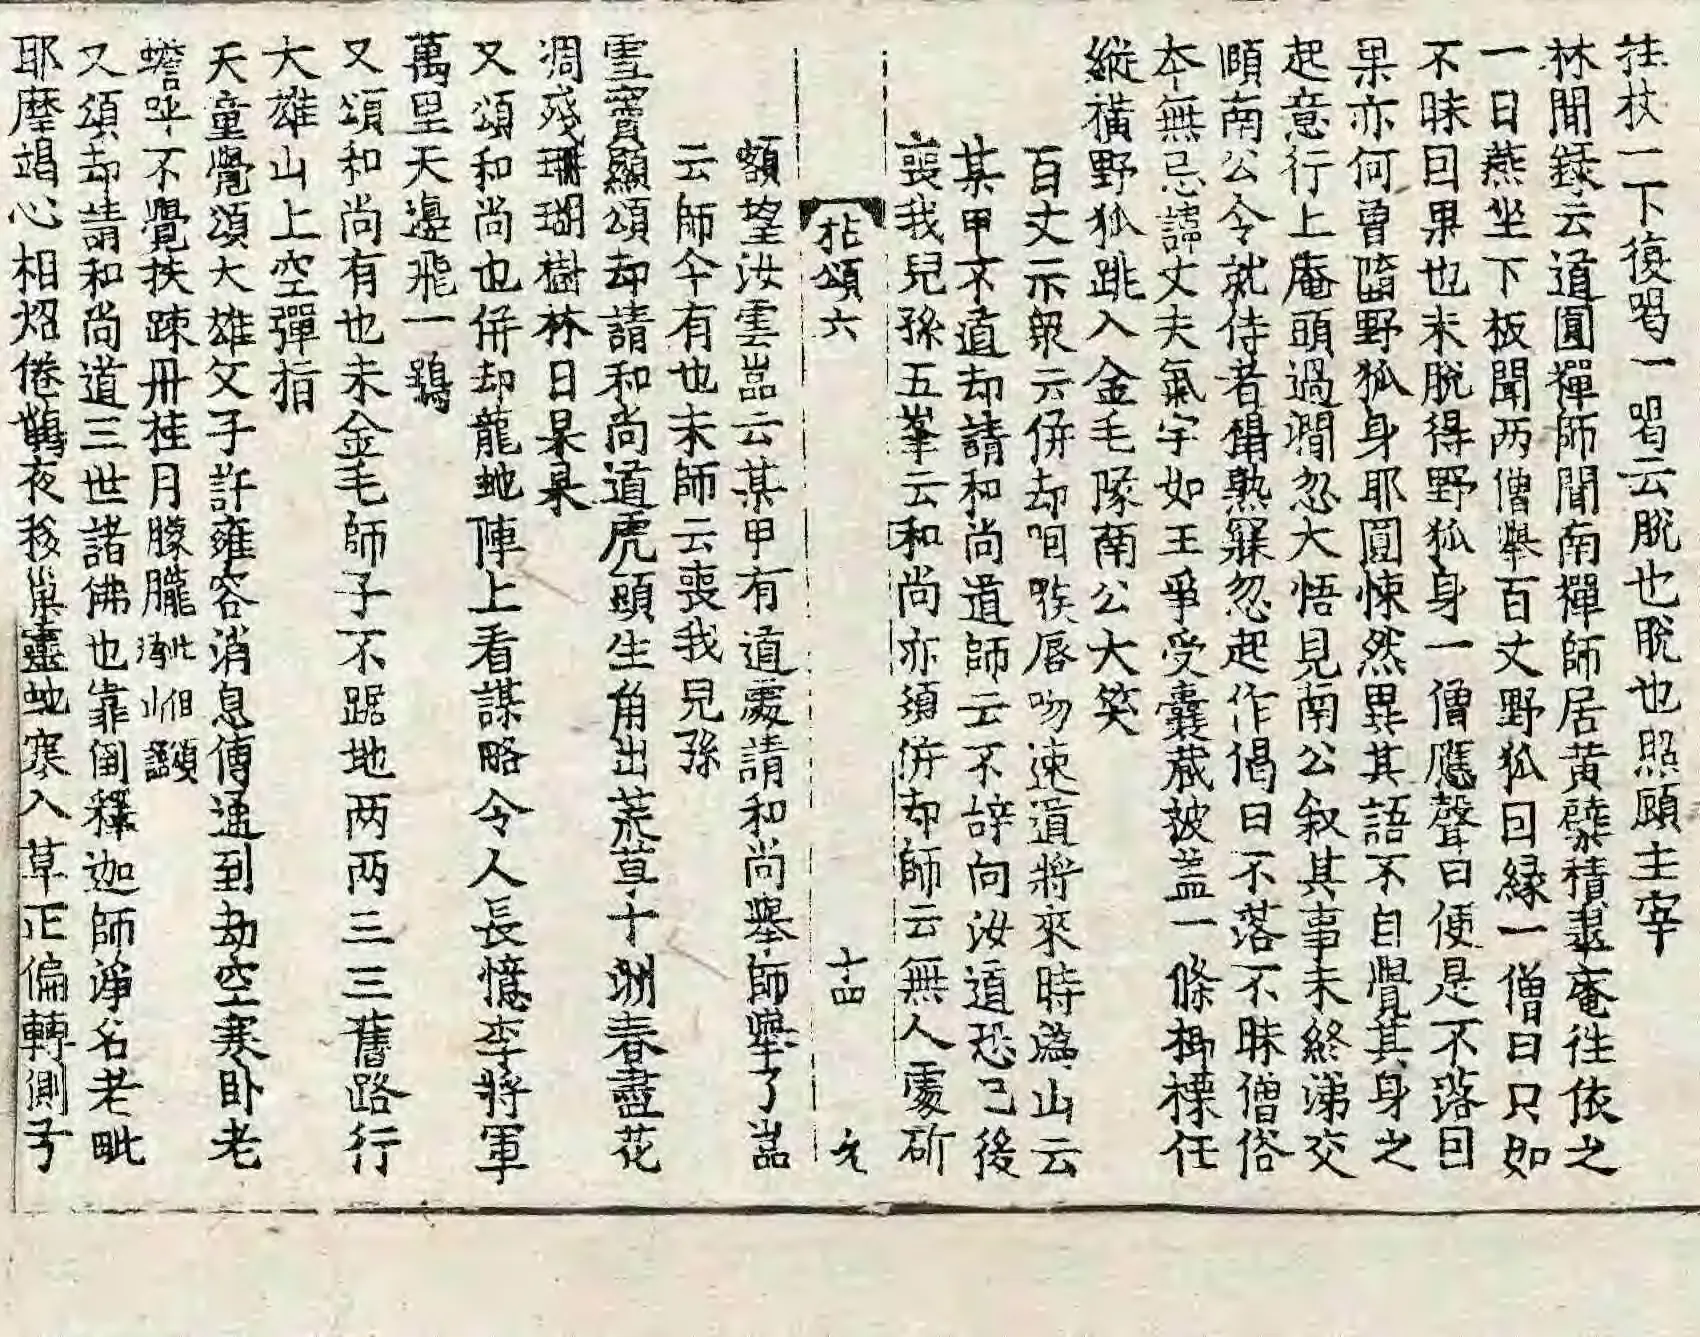 拄杖一下復喝一喝云脫也脫也照顧主宰
林間錄云道圓禪師聞南禪師居黃蘗積翠庵往依之
一日燕坐下板聞两僧舉百丈野狐因緣一僧曰只如
不昧因果也未脫得野狐身一僧應聲曰便是不落因
果亦何曾墮野狐身耶圓悚然異其語不自覺其身之
起意行上庵頭過澗忽大悟見南公叙其事未終涕交
頤南公令就侍者榻熟寐忽起作偈曰不落不昧僧俗
本無忌諱丈夫氣宇如王爭受囊藏被盖一條楖標任
縱橫野狐跳入金毛隊南公大笑
百丈示衆云併却咽喉唇吻速道將來時溈山云
某甲不道却請和尚道師云不辞向汝道恐已後
喪我兒孫五峯云和尚亦須併却師云無人處斫
拈頌六 十四 允
額望汝雲嵓云某甲有道處請和尚舉師舉了嵓
云師今有也未師云喪我兒孫
雪竇顯頌却請和尚道虎頭生角出荒草十洲春盡花
凋殘珊瑚樹林日杲杲
又頌和尚也併却龍虵陣上看謀略令人長憶李將軍
萬里天邊飛一鶚
又頌和尚有也未金毛師子不踞地两两三三舊路行
大雄山上空彈指
天童覺頌大雄父子許雍容消息傳通到劫空寒卧老
蟾呼不覺扶踈丹桂月朦朧此但頌溈山語
又頌却請和尚道三世諸佛也靠倒釋迦師淨名老毗
耶摩竭心相炤倦鶴夜移巢靈虵寒入草正偏轉側子